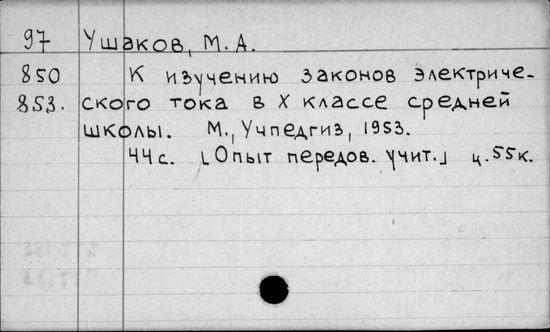 97 Ушаков, М. А.
850 К изучению законов электриче-
853. ского тока в X классе средней
школы. М., Учпедгиз, 1953.
44 с. [Опыт передов. учит.] ц. 55 к.